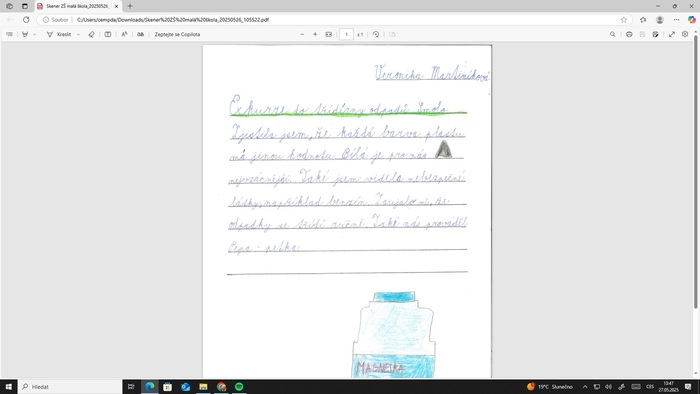 Skener ZŠ malá škola_20250526_
Soubor
C:/Users/cempda/Downloads/Skener%20ZŠ%20malá%20škola_20250526_105522.pdf
Kreslit
Zeptejte se Copilota
1
z 1
Veronika Martiníková
Exkurze do třídírny odpadů Smolo
Zjistila jsem, že každá barva plastu
má jinou hodnotu. Bílá je pro nás
nejvzácnější. Také jsem viděla nebezpečné
látky, například benzín. Zaujalo mě, že
odpadky se třídí ručně. Také nás prováděl
Pepa - petka
MAGNETKA
Hledat
19°C Slunečno
CES
13:47
27.05.2025